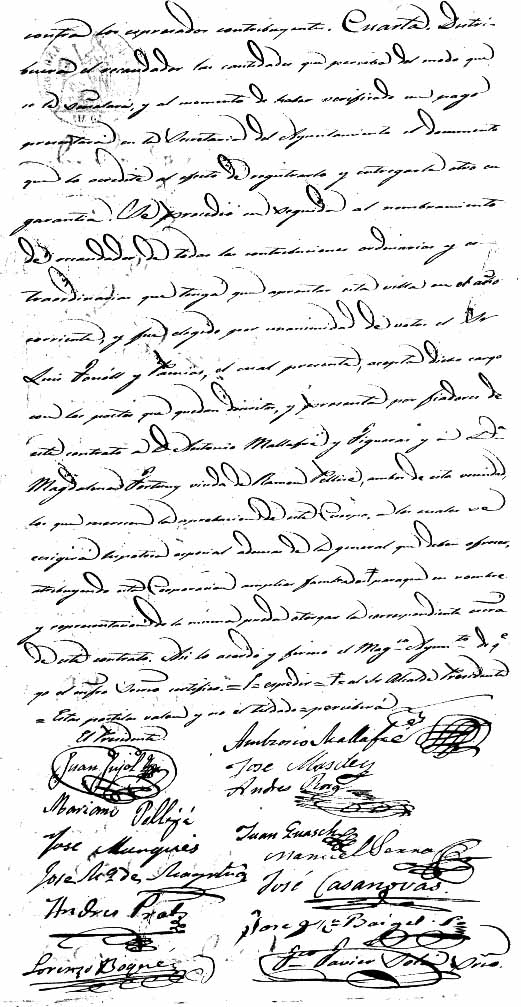 contra los expresados contribuyentes. Cuarta. Distri-
buirá el recaudador las cantidades que perciba del modo que
se le señalará, y al momento de haber verificado un pago
presentará en la Secretaria del Ayuntamiento el documento
que lo acredite al efecto de registrarlo y entregarle otro en
garantia. Se procedió en seguida al nombramiento
de recaudador, de todas las contribuciones ordinarias y es-
traordinarias que tenga que aprontar esta villa en el año
corriente, y fué elegido por unanimidad de votos el Sr
Luis y el cual presente, acepta dicho cargo
con los pactos que quedan y presenta por fiadores de
este contrato a D. Antonio Mallafré y Figueras y a D.ª
Magdalena Fortuny viuda de Ramon Pellicé, ambos de esta vecindad
los que merecen la aprobacion de este Cuerpo, a los cuales se
ecsigirá hipoteca especial ademas de la general que deben ofrecer,
atribuyendo esta Corporacion amplias facultades † para que en nombre
y representacion de la misma pueda otorgar la correspondiente
de este contrato. Asi lo acordó y firmó el Mag.co Ayun.to de q.e
yo el infro Srno certifico. = = espedir = † = al Sr Alcalde Presidente
= Estas postelas valen y no el tildado = percibirá
El Presidente
Juan Pujol
Ambrosio Mallafré
Jose Masdeu
Andres Roig
Mariano Pellicé
Jose Marques
Juan Guasch
Manuel Serra
Jose M.ª de Magriñá
José Casanovas
Andres Prats
Jose M.ª Baiget
Lorenzo Boqué
Fco Xavier Srio.